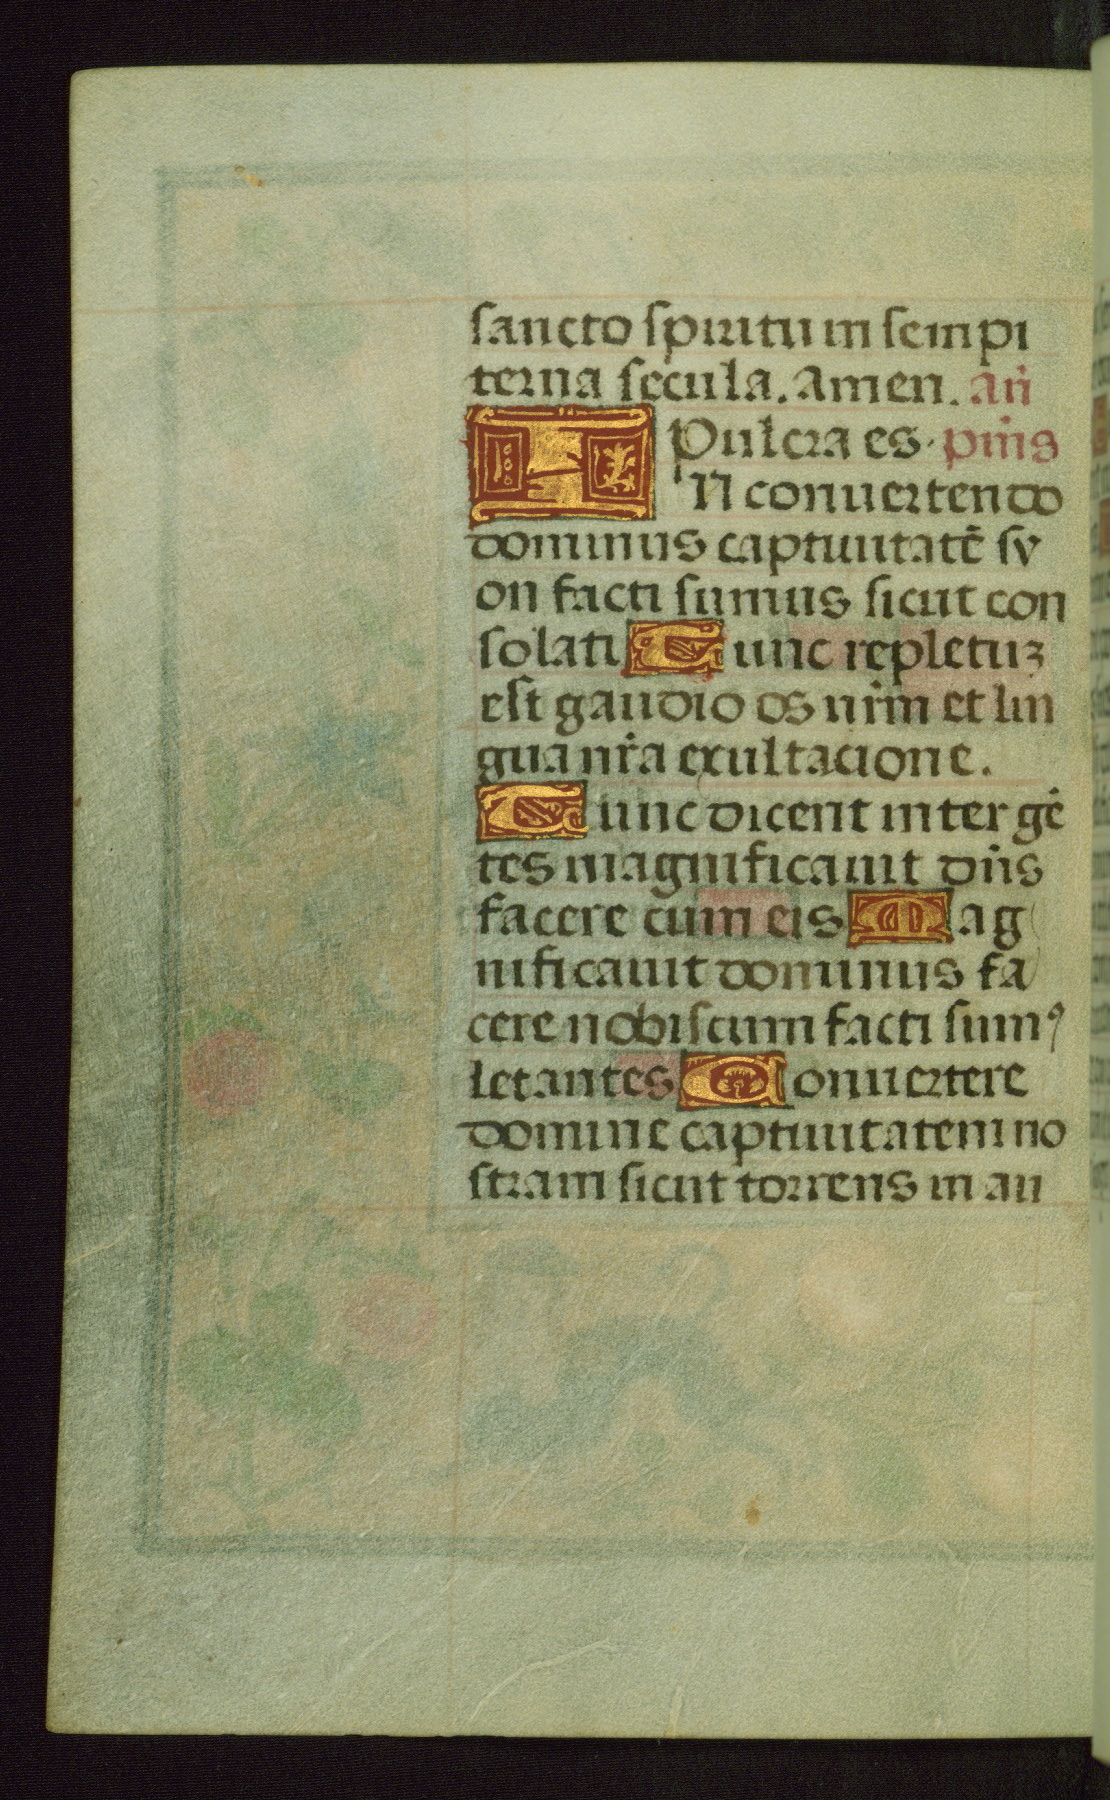 sancto spiritu in sempi
terna secula. amen. an̄
Pulcra es. pm̄s
IN conuertendo
dominus captiuitatē sy
on facti sumus sicut con
solati Tunc repletuꝛ
est gaudio os nr̄m et lin
gua nr̄a exultacione.
Tunc dicent inter gē
tes magnificauit dn̄s
facere cum eis Mag
nificauit dominus fa
cere nobiscum facti sumꝰ
letantes Conuertere
domine captiuitatem no
stram sicut torrens in au